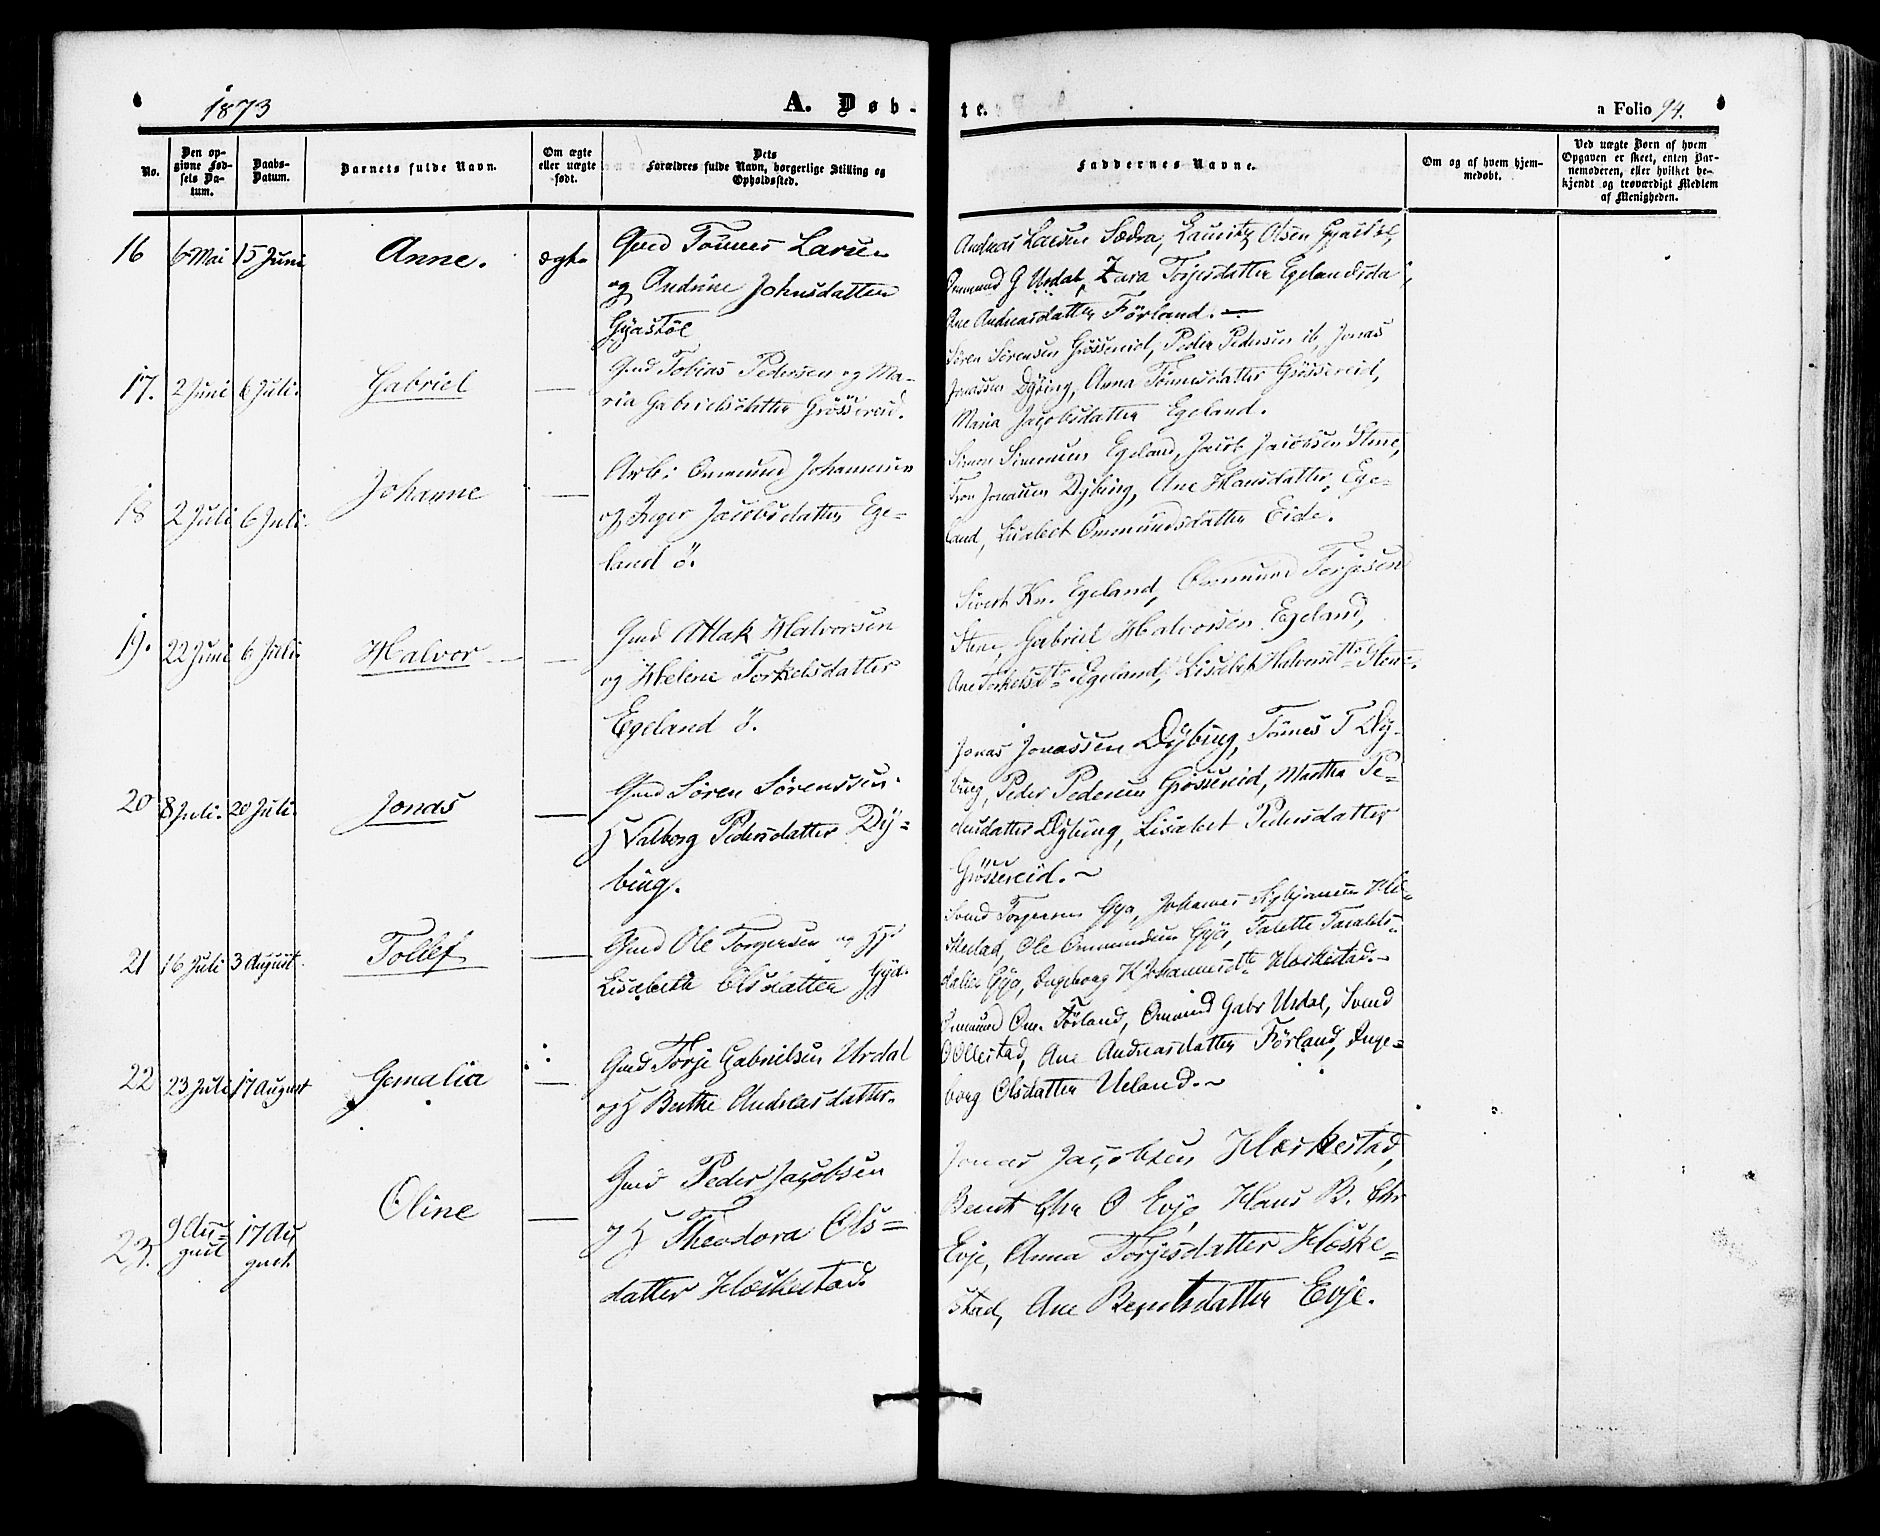 1873
A. Døb-
te.
a Folio 94.
No.
Den op-
givne Fød-
sels Da-
tum.
Daabs-
Datum.
Barnets fulde Navn.
Om ægte
eller uægte
født.
Dets
Forældres fulde Navn, borgerlige Stilling og
Opholdssted.
Faddernes Navne.
Om og af hvem hjem-
medøbt.
Ved uægte Børn af hvem
Opgaven er skeet, enten Bar-
nemoderen, eller hvilket be-
kjendt og troværdigt Medlem
af Menigheden.
16 6 Mai 15 Juni Anne. ægte
Gmd Tønnes Larsen
og Andrine Johnsdatter
Gyastøl
Andreas Larsen Sædra, Lauritz Olsen Gyastøl,
Ommund G Urdal, Zara Torjesdatter Egelandsda
Ane Andreasdatter Förland.
17. 2 Juni 6 Juli. Gabriel —
Gmd Tobias Pedersen og Ma-
ria Gabrielsdatter Grössereid.
Søren Sørensen Grössereid, Peder Pedersen ib, Jonas
Jonassen Dybing, Anna Tönnesdatter Grössereid,
Maria Jacobsdatter Egeland.
18 2 Juli 6 Juli. Johanne —
Arb: Ommund Johannesen
og Inger Jacobsdatter Ege-
land ö.
Simon Simonsen Egeland, Jacob Jacobsen Stene,
Tron Jonassen Dybing, Ane Hansdatter Ege-
land, Lisabet Ommundsdatter Eide.
19. 22 Juni 6 Juli. Halvor —
Gmd Atlak Halvorsen
og Helene Torkelsdatter
Egeland ö.
Sivert Kn. Egeland, Ommund Torjesen
Stene, Gabriel Halvorsen Egeland,
Ane Torkelsdtr Egeland, Lisabet Halvorsdtr Stene.
20 8 Juli. 20 Juli. Jonas —
Gmd Søren Sørenssen
H Valborg Pedersdatter Dy-
bing.
Jonas Jonassen Dybing, Tönnes T Dy-
bing, Peder Pedersen Grössereid, Martha To-
Dybing, Lisabet Pedersdatter
Grössereid.
21 16 Juli 3 August. Tollef —
Gmd Ole Torgersen og H
Lisabeth Olsdatter Gya.
Svend Torgersen Gya, Johannes
Ole Ommundsen Gya,
Gya, Ingeborg K Johannesdtr Heskestad.
22 23 Juli 17 August Gemalia —
Gmd Torje Gabrielsen Urdal
og H Berthe Andreasdatter.
Ommund Om. Förland, Omund Gabr Urdal, Svend
O Ollestad, Ane Andreasdatter Förland, Inge-
borg Olsdatter Ueland.
23. 9 Au-
gust 17 Au
gust. Oline —
Gmd Peder Jacobsen
og H Theodora Ols-
datter Heskestad.
Jonas Jacobsen Heskestad,
Bernt Chr O Evje, Hans B. Chr
Evje, Anna Torjesdatter Heske-
stad, Ane Berntsdatter Evje.